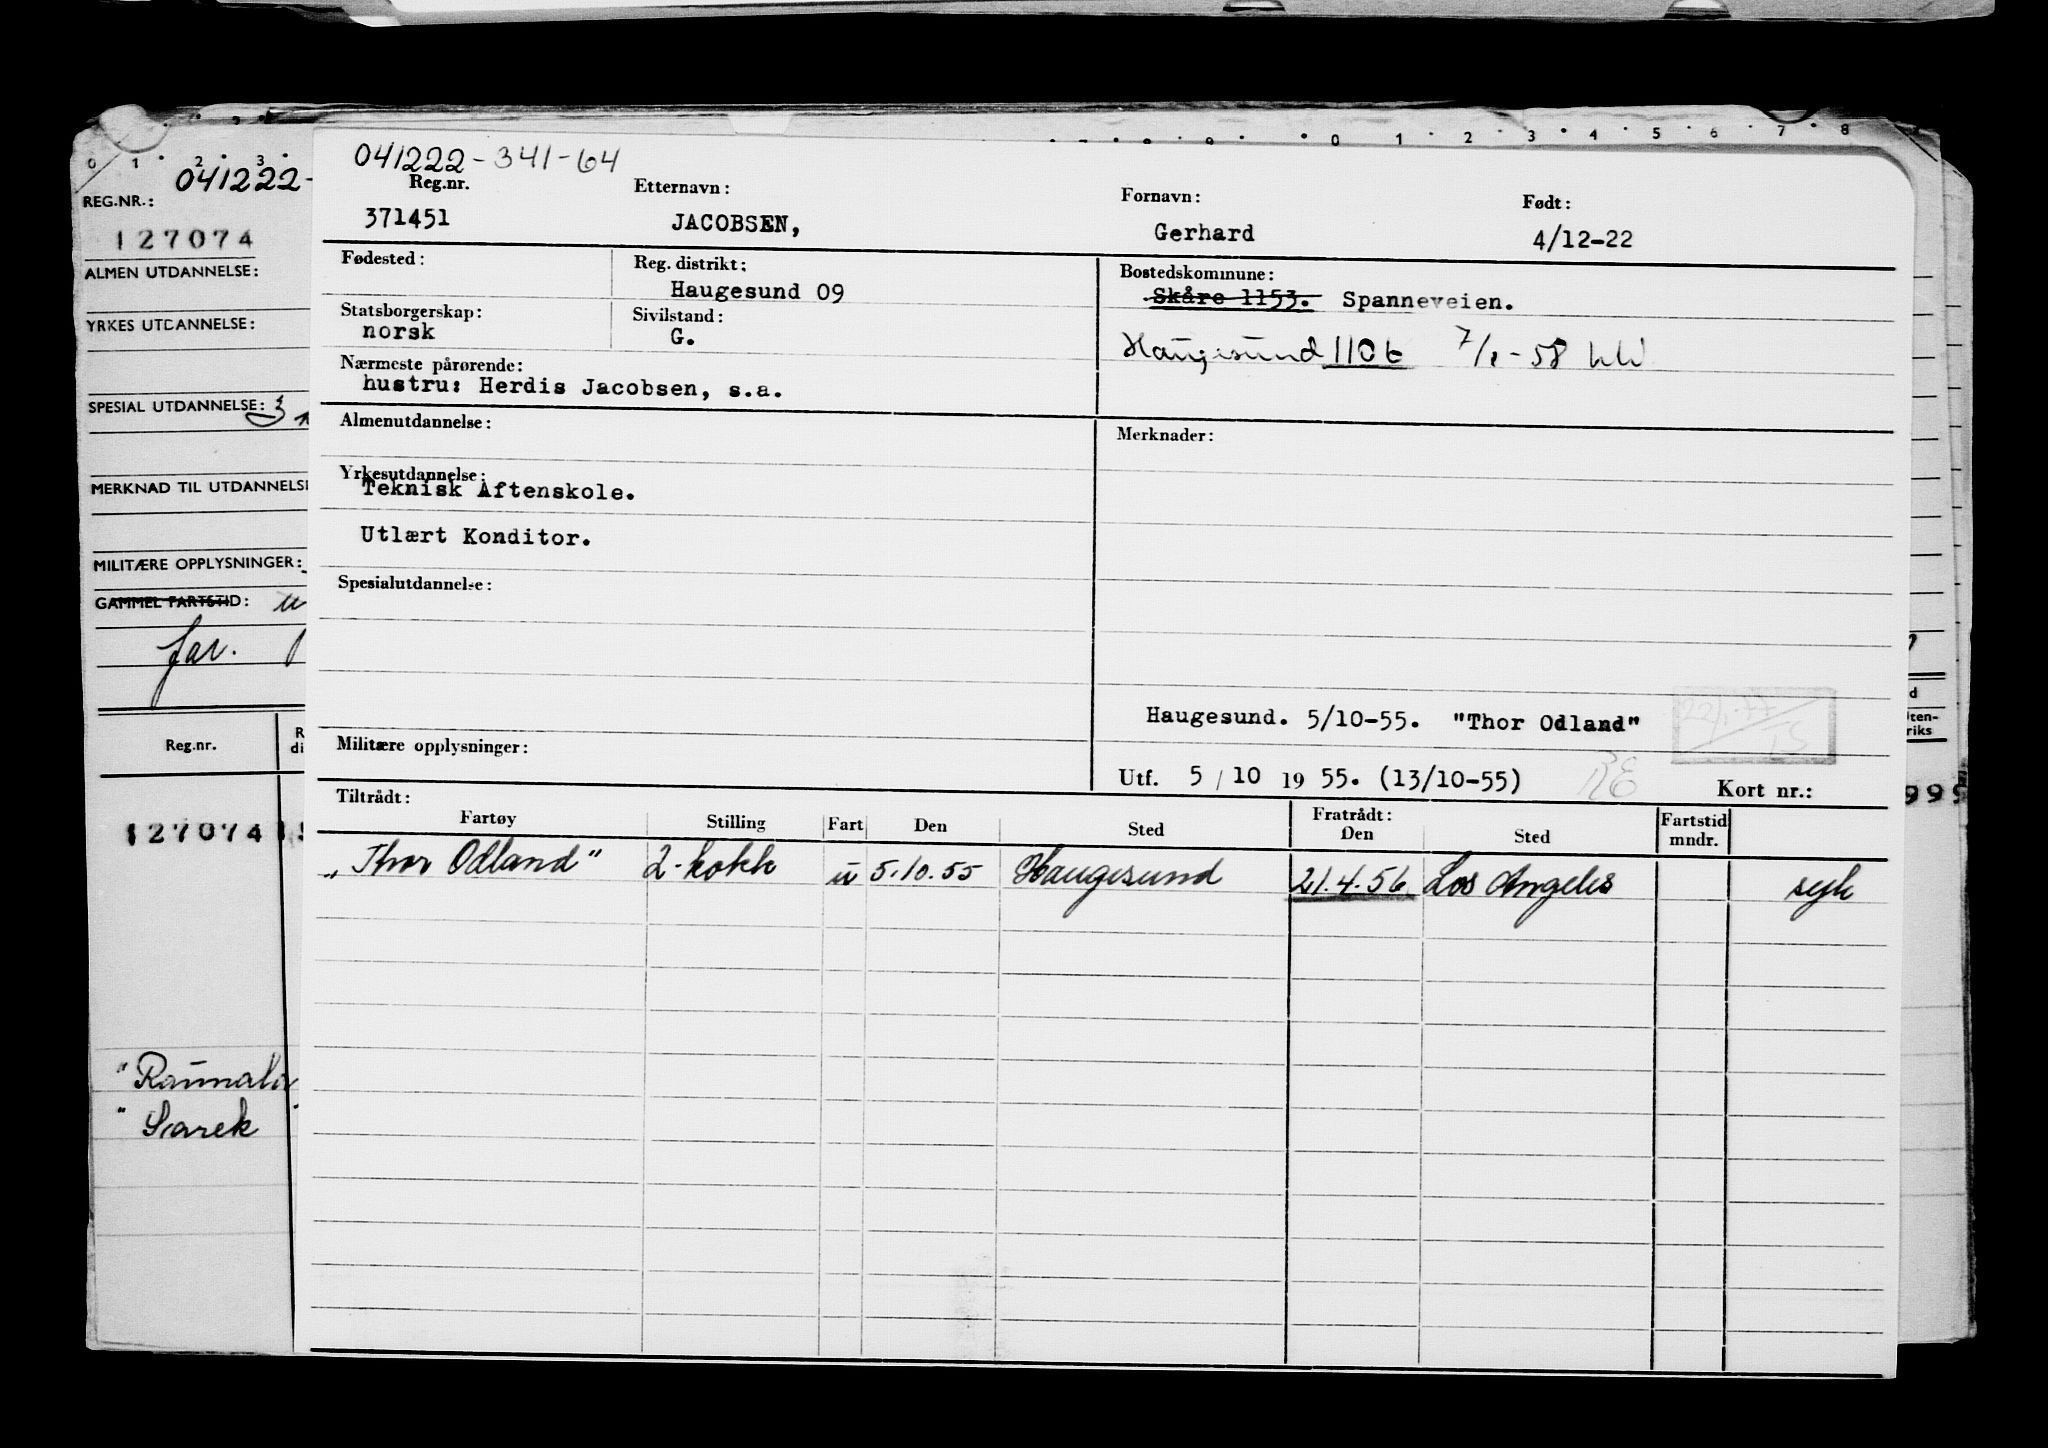 0 1 2 3
7 8 9 0 1 2 3 4 5 6 7 8
041222-
REG.NR.:
127074
ALMEN UTDANNELSE:
YRKES UTDANNELSE:
SPESIAL UTDANNELSE: 3
MERKNAD TIL UTDANNELSE
MILITÆRE OPPLYSNINGER:
GAMMEL FARTSTID: u
far.
Reg.nr.
R
di
127074
"Raumala
"Sarek
d
ten-
riks
999
041222-341-64
Reg.nr. Etternavn: Fornavn: Født:
371451 JACOBSEN, Gerhard 4/12-22
Fødested: Reg. distrikt: Bostedskommune:
Haugesund 09 Skåre 1153. Spanneveien.
Statsborgerskap: Sivilstand:
norsk G. Haugesund 1106 7/1-58
Nærmeste pårørende:
hustru: Herdis Jacobsen, s.a.
Almenutdannelse: Merknader:
Yrkesutdannelse:
Teknisk Aftenskole.
Utlært Konditor.
Spesialutdannelse:
Haugesund. 5/10-55. "Thor Odland"
Militære opplysninger:
Utf. 5 / 10 19 55. (13/10-55) Kort nr.:
Tiltrådt: Fratrådt:
Fartøy Stilling Fart Den Sted Den Sted Fartstid mndr.
"Thor Odland" 2-kokk u 5.10.55 Haugesund 21.4.56 Los Angeles syk